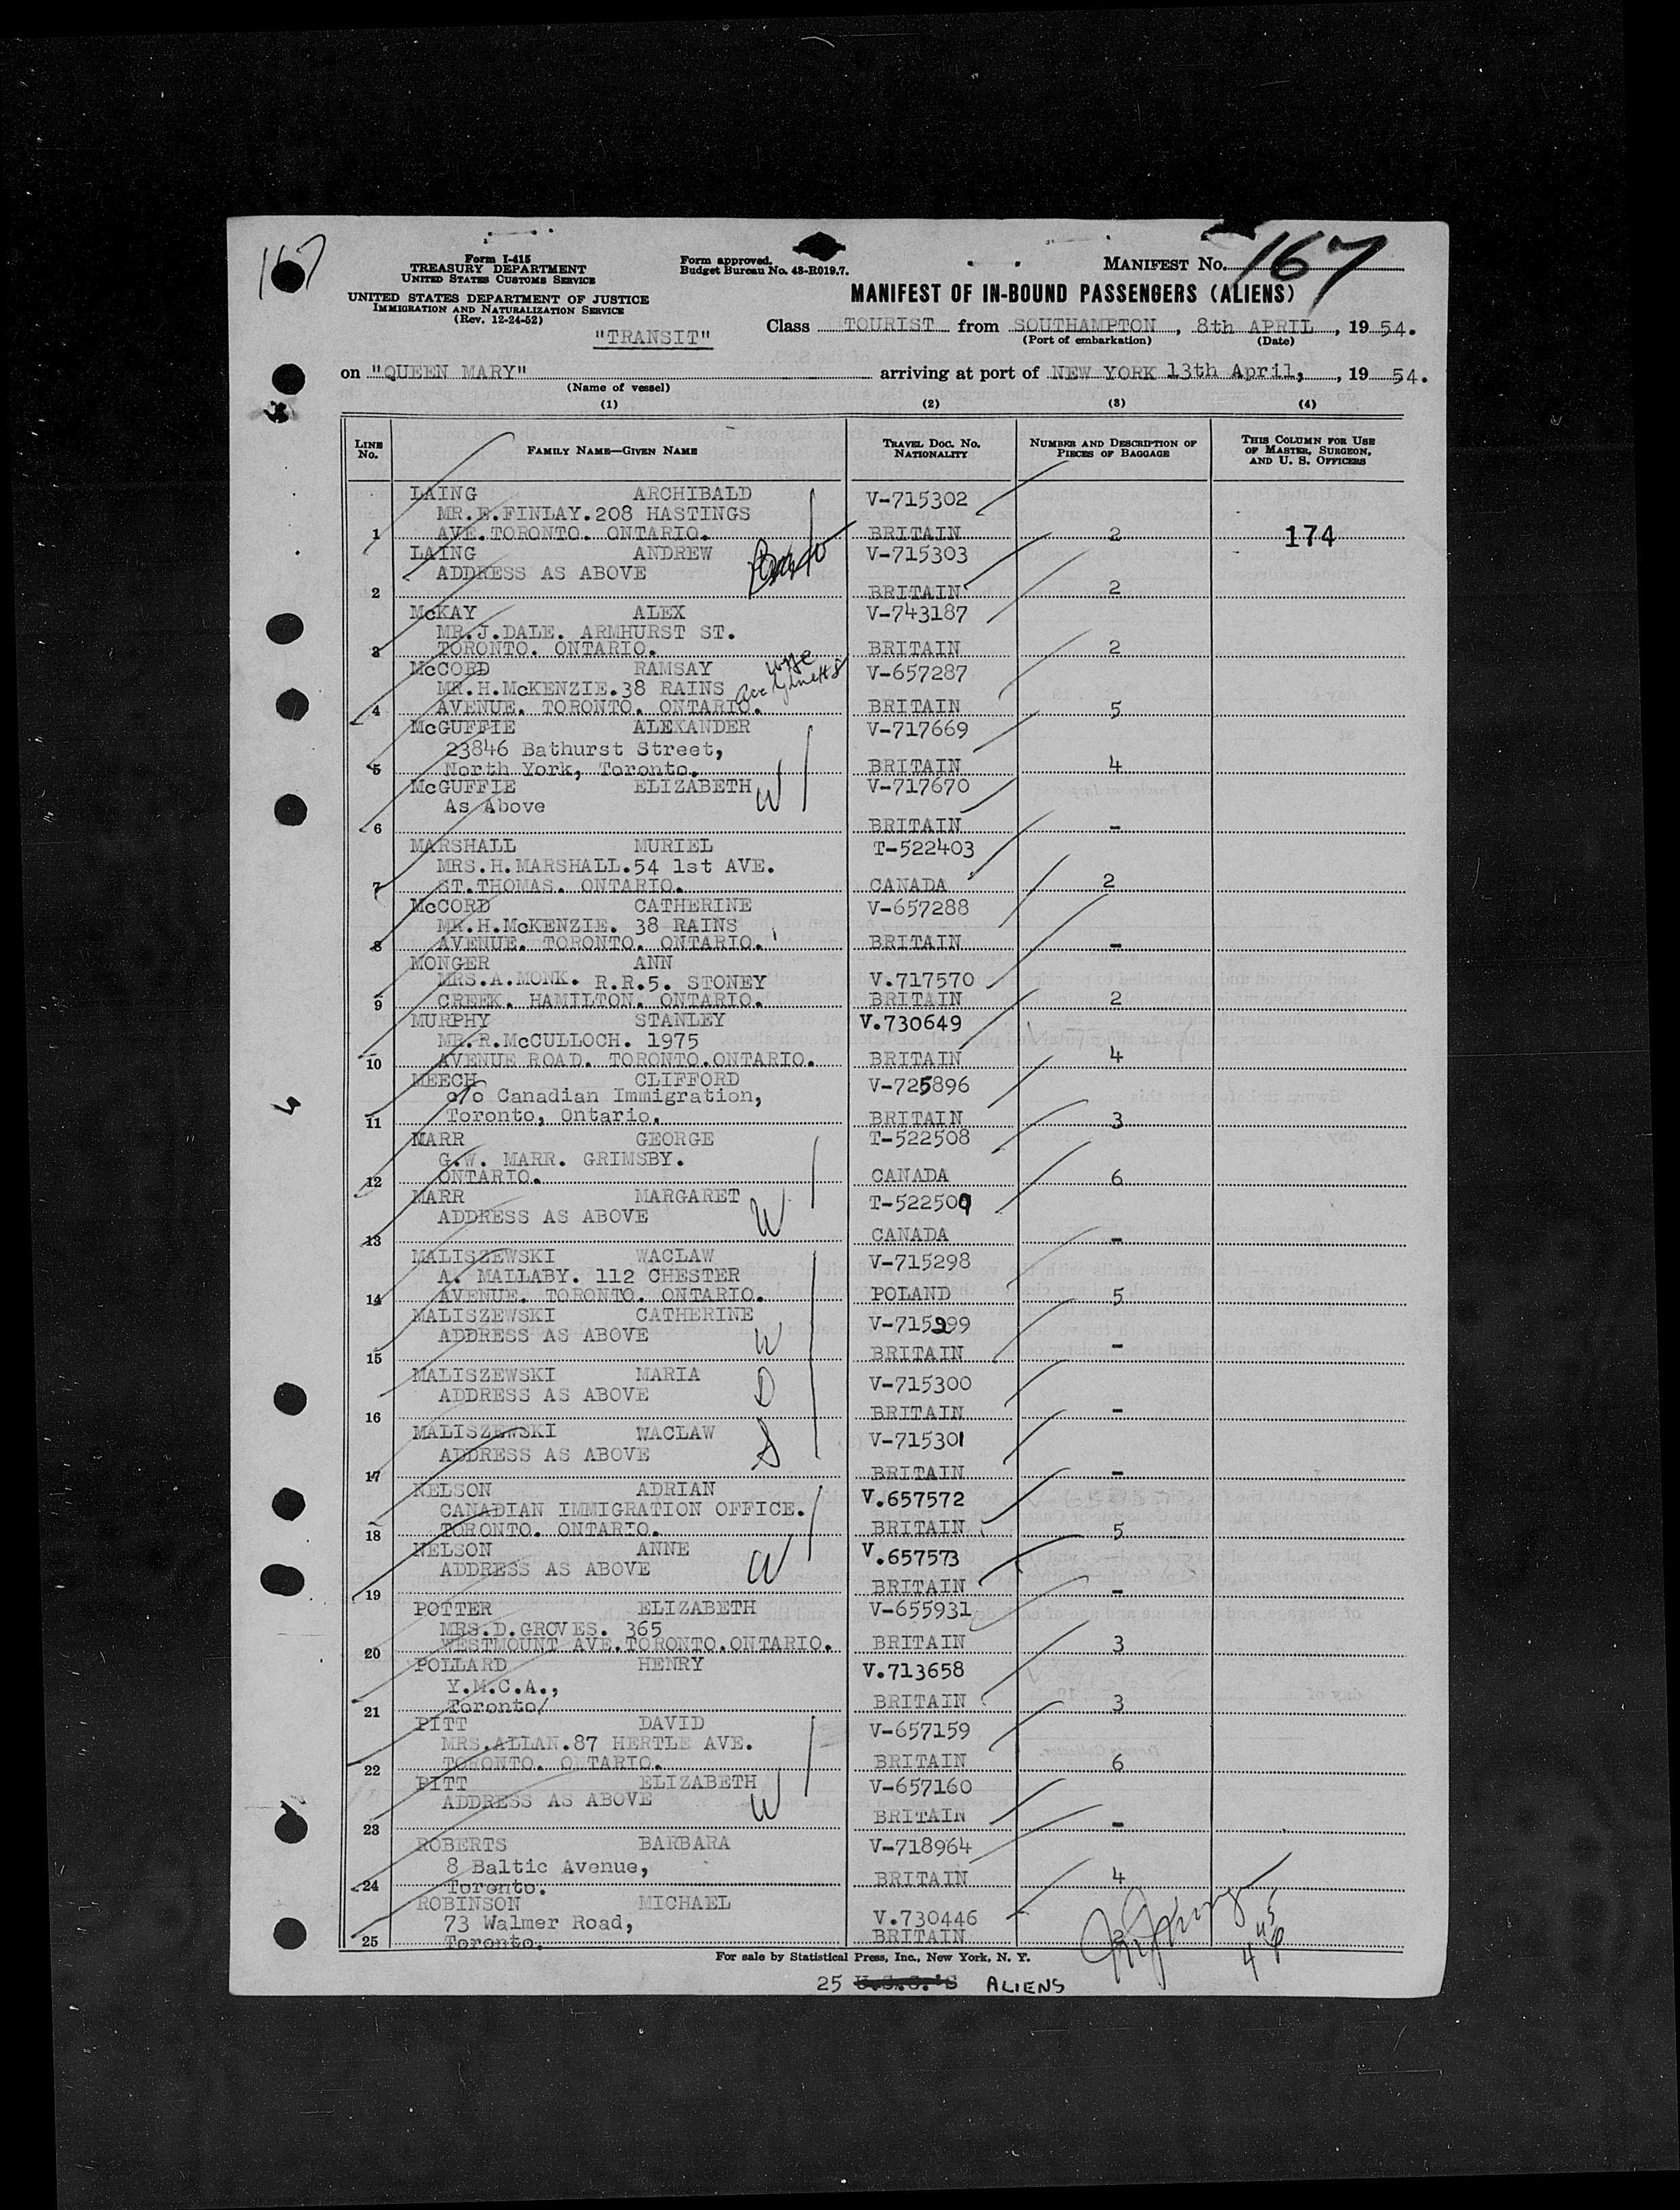 167
Form I-415
TREASURY DEPARTMENT
UNITED STATES CUSTOMS SERVICE
UNITED STATES DEPARTMENT OF JUSTICE
IMMIGRATION AND NATURALIZATION SERVICE
(Rev. 12-24-52)
Form approved.
Budget Bureau No. 43-R019.7.
MANIFEST No. 167
MANIFEST OF IN-BOUND PASSENGERS (ALIENS)
"TRANSIT"
Class TOURIST from SOUTHAMPTON, 8th APRIL, 19 54.
(Port of embarkation) (Date)
on "QUEEN MARY" arriving at port of NEW YORK 13th April, , 19 54.
(Name of vessel)
(1) (2) (3) (4)
LINE No. FAMILY NAME—GIVEN NAME TRAVEL DOC. No. NATIONALITY NUMBER AND DESCRIPTION OF PIECES OF BAGGAGE THIS COLUMN FOR USE OF MASTER, SURGEON, AND U. S. OFFICERS
LAING ARCHIBALD V-715302
MR.E.FINLAY.208 HASTINGS
1 AVE.TORONTO. ONTARIO. BRITAIN 2 174
LAING ANDREW V-715303
ADDRESS AS ABOVE
2 BRITAIN 2
McKAY ALEX V-743187
MR.J.DALE. ARMHURST ST.
3 TORONTO. ONTARIO. BRITAIN 2
McCORD RAMSAY wife V-657287
MR.H.McKENZIE.38 RAINS
4 AVENUE. TORONTO. ONTARIO. BRITAIN 5
McGUFFIE ALEXANDER V-717669
23846 Bathurst Street,
5 North York, Toronto. BRITAIN 4
McGUFFIE ELIZABETH W V-717670
As Above
6 BRITAIN -
MARSHALL MURIEL T-522403
MRS.H.MARSHALL.54 1st AVE.
7 ST.THOMAS. ONTARIO. CANADA 2
McCORD CATHERINE V-657288
MR.H.McKENZIE. 38 RAINS
8 AVENUE. TORONTO. ONTARIO. BRITAIN -
MONGER ANN
MRS.A.MONK. R.R.5. STONEY V.717570
9 CREEK. HAMILTON. ONTARIO. BRITAIN 2
MURPHY STANLEY V.730649
MR.R.McCULLOCH. 1975
10 AVENUE ROAD. TORONTO.ONTARIO. BRITAIN 4
MEECH CLIFFORD V-725896
c/o Canadian Immigration,
11 Toronto, Ontario. BRITAIN 3
MARR GEORGE T-522508
G.W. MARR. GRIMSBY.
12 ONTARIO. CANADA 6
MARR MARGARET W T-522509
ADDRESS AS ABOVE
13 CANADA -
MALISZEWSKI WACLAW V-715298
A. MALLABY. 112 CHESTER
14 AVENUE. TORONTO. ONTARIO. POLAND 5
MALISZEWSKI CATHERINE V-715299
ADDRESS AS ABOVE W
15 BRITAIN -
MALISZEWSKI MARIA V-715300
ADDRESS AS ABOVE D
16 BRITAIN -
MALISZEWSKI WACLAW V-715301
ADDRESS AS ABOVE S
17 BRITAIN -
NELSON ADRIAN V.657572
CANADIAN IMMIGRATION OFFICE.
18 TORONTO. ONTARIO. BRITAIN 5
NELSON ANNE V.657573
ADDRESS AS ABOVE W
19 BRITAIN -
POTTER ELIZABETH V-655931
MRS.D.GROVES. 365
20 WESTMOUNT AVE.TORONTO.ONTARIO. BRITAIN 3
POLLARD HENRY V.713658
Y.M.C.A.,
21 Toronto/ BRITAIN 3
PITT DAVID V-657159
MRS.ALLAN.87 HERTLE AVE.
22 TORONTO. ONTARIO. BRITAIN 6
PITT ELIZABETH V-657160
ADDRESS AS ABOVE W
23 BRITAIN -
ROBERTS BARBARA V-718964
8 Baltic Avenue,
24 Toronto. BRITAIN 4
ROBINSON MICHAEL
73 Walmer Road, V.730446
25 Toronto. BRITAIN
For sale by Statistical Press, Inc., New York, N. Y.
25 U.S.C.'S ALIENS